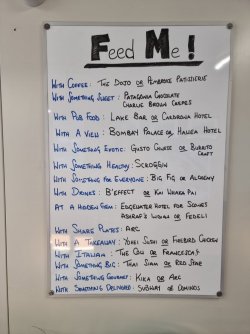 Feed Me!
With Coffee: The Dojo or Pembroke Patisserie
With Something Sweet: Patagonia Chocolate
Charlie Brown Crepes
With Pub Food: Lake Bar or Cardrona Hotel
With A View: Bombay Palace or Hawea Hotel
With Something Exotic: Gusto Gnosis or Burrito Craft
With Something Healthy: Scroggin
With Something for Everyone: Big Fig or Alchemy
With Drinks: B'effect or Kai Whaka Pai
At A Hidden Gem: Edgewater Hotel for Scones
Ashraf's Indian or Fedeli
With Share Plates: Arc
With A Takeaway: Yohei Sushi or Firebird Chicken
With Italian: The Cow or Francesca's
With Something Big: Thai Siam or Red Star
With Something Gourmet: Kika or Arc
With Something Delivered: Subway or Dominos